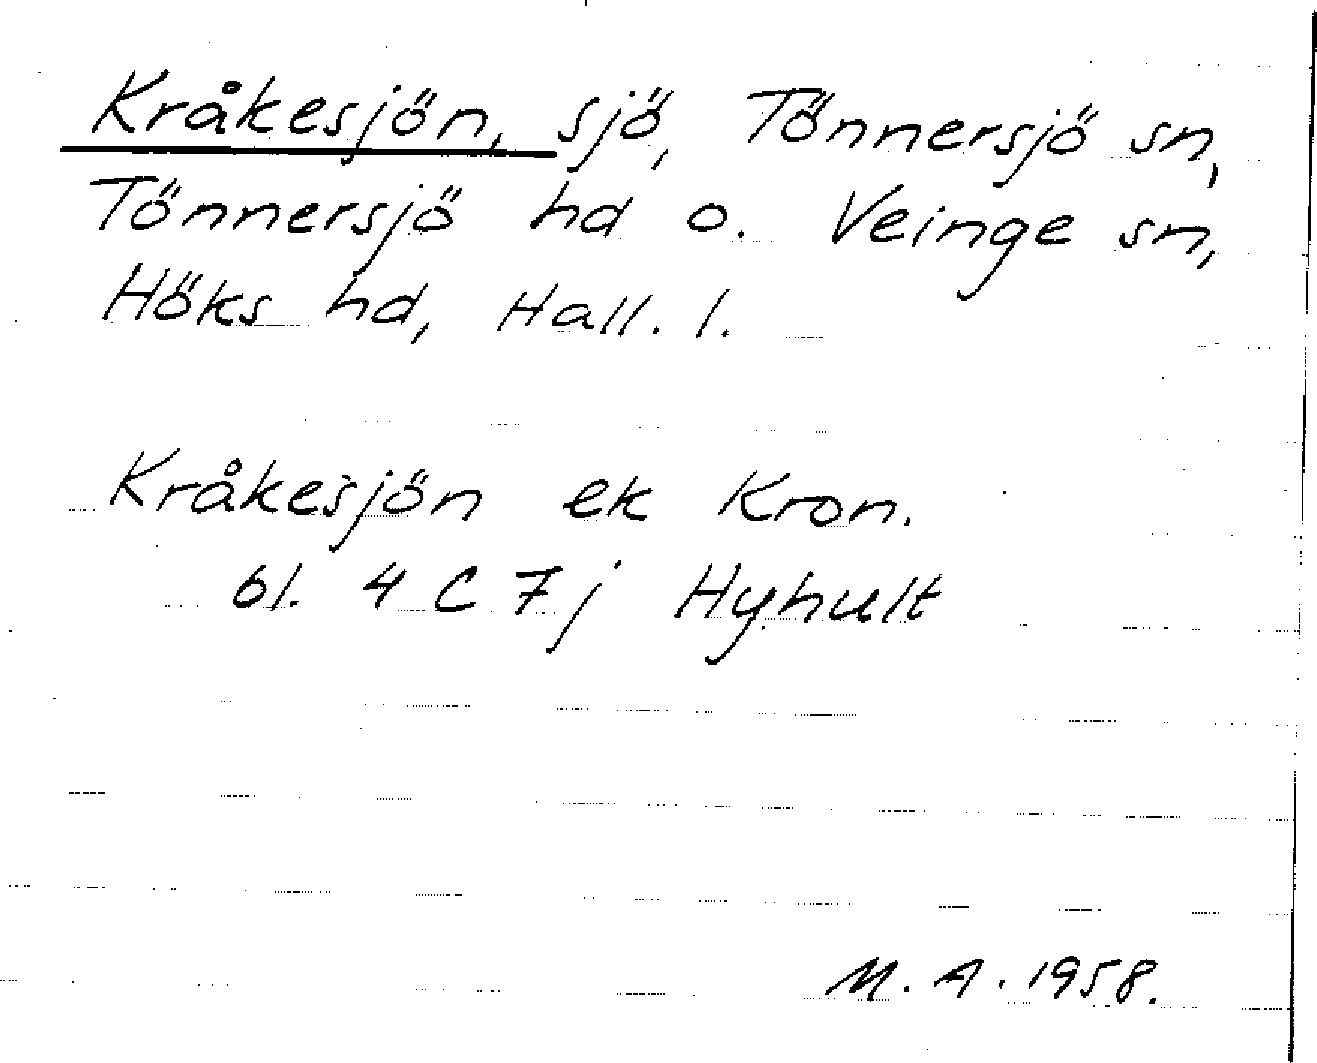 Kråkesjön, sjö, Tönnersjö sn,
Tönnersjö hd o. Veinge sn,
Höks hd, Hall. l.
Kråkesjön ek Kron.
bl. 4 C 7 j Hyhult
M. A. 1958.